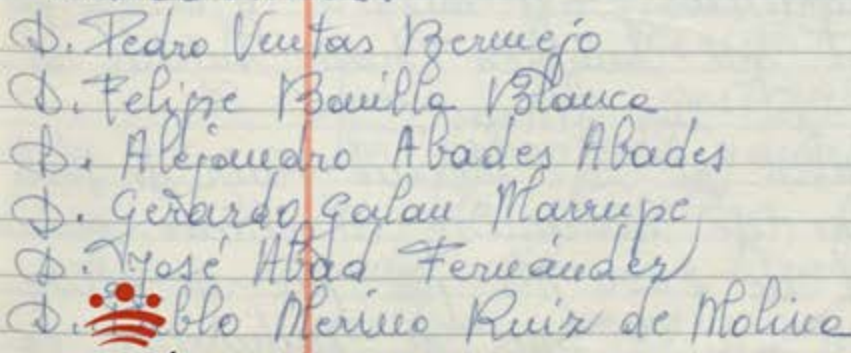 D. Pedro Ventas Bermejo
D. Felipe Bonilla Blanca
D. Alejandro Abades Abades
D. Gerardo Galan Marrupe
D. José Abad Fernández
D. blo Merino Ruiz de Molina